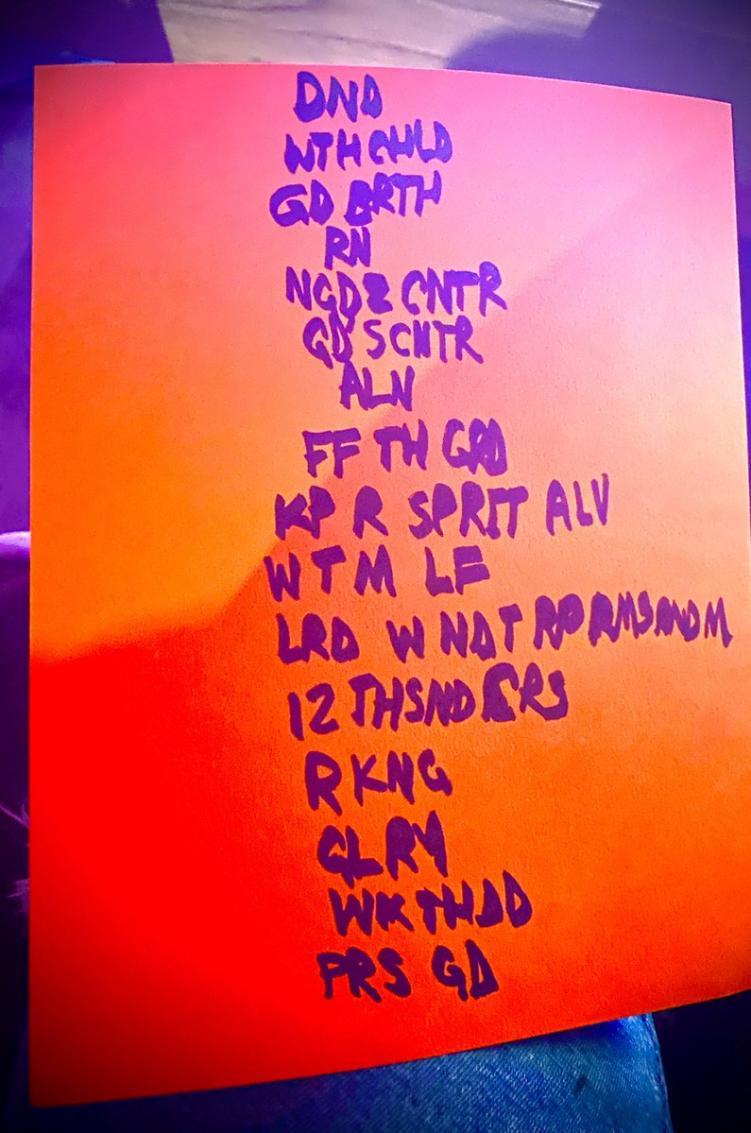 DND
WTH CHLD
GD BRTH
RN
NGDZ CNTR
GD S CNTR
ALN
FF TH GRD
KP R SPRIT ALV
W T M LF
LRD W NDT
12 THSND YRS
R KNG
GLRY
WK TH DD
PRS GD